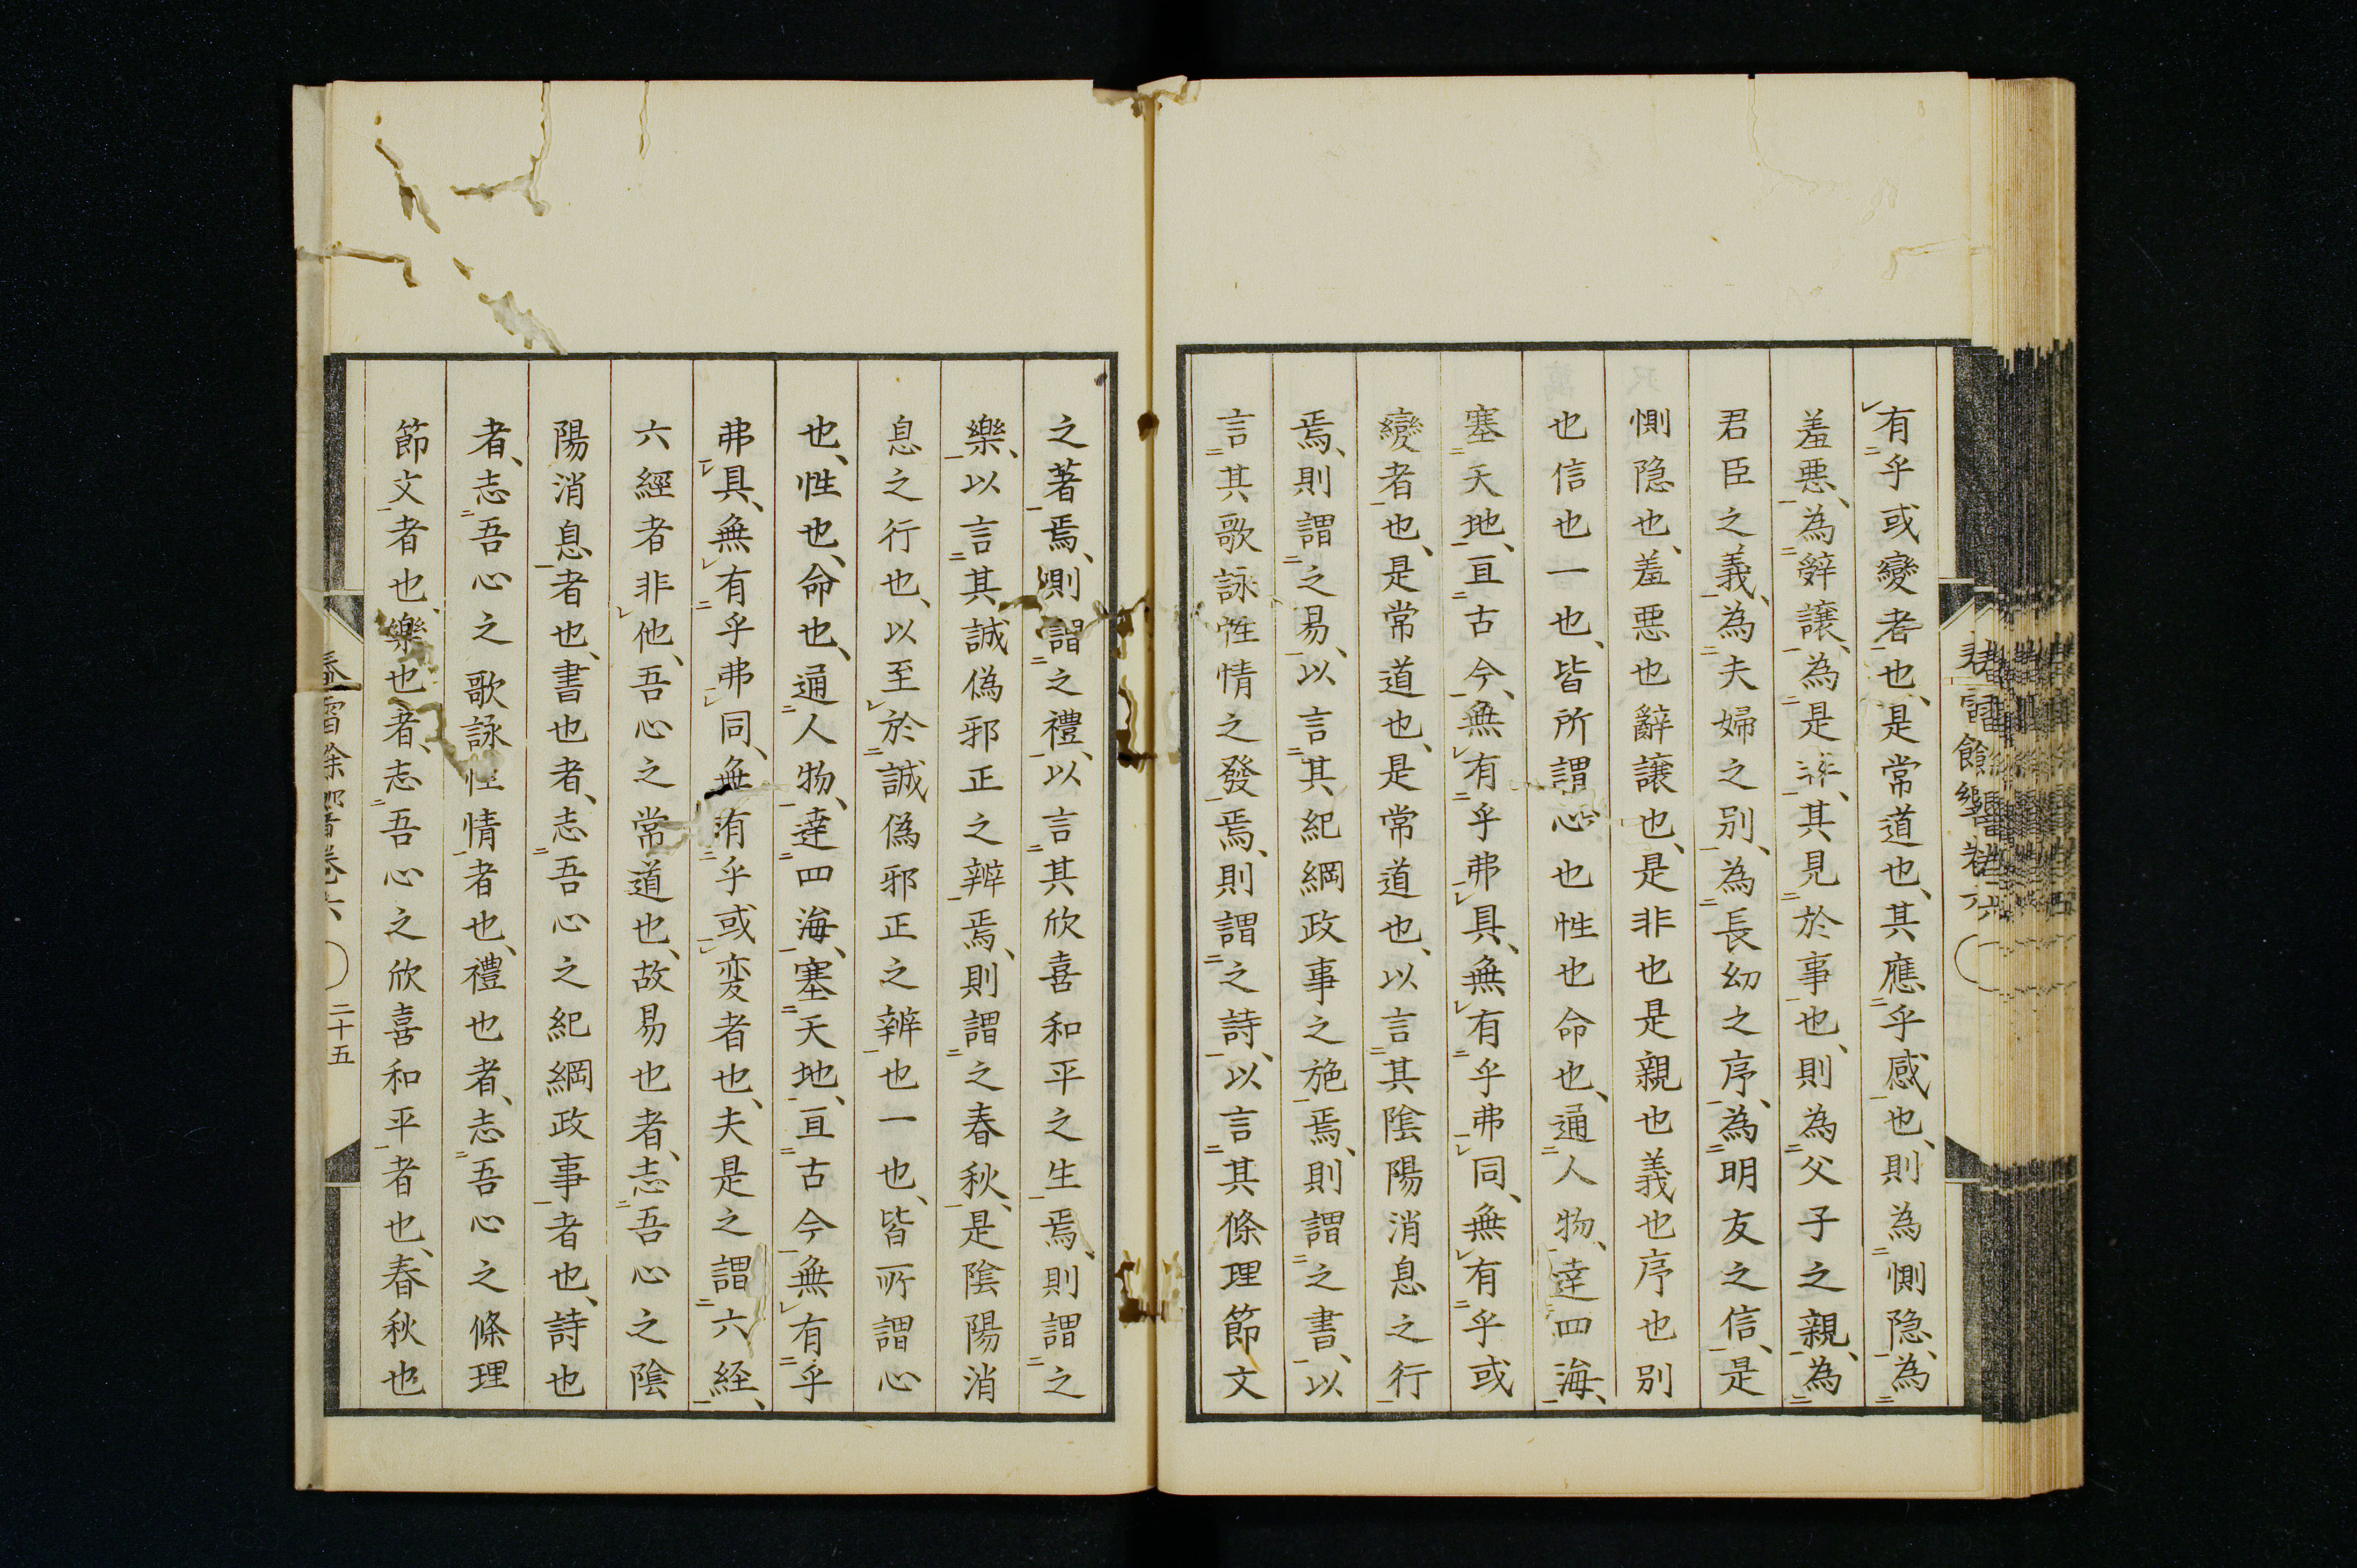 有乎或變者也、是常道也、其應乎感也、則為惻隐、為
羞悪、為辤譲、為是非、其見於事也、則為父子之親、為
君臣之義、為夫婦之别、為長幼之序、為明友之信、是
惻隐也、羞悪也辭譲也、是非也是親也義也序也别
也信也一也、皆所謂心也性也命也、通人物、達四海、
塞天地、亘古今、無有乎弗具、無有乎弗同、無有乎或
變者也、是常道也、是常道也、以言其陰陽消息之行
焉、則謂之易、以言其紀綱政事之施焉、則謂之書、以
言其歌詠性情之發焉、則謂之詩、以言其條理節文
之著焉、則謂之禮、以言其欣喜和平之生焉、則謂之
樂、以言其誠偽邪正之辨焉、則謂之春秋、是陰陽消
息之行也、以至於誠偽邪正之辨也一也、皆所謂心
也、性也、命也、通人物、達四海、塞天地、亘古今無有乎
弗具、無有乎弗同、無有乎或変者也、夫是之謂六経、
六經者非他、吾心之常道也、故易也者、志吾心之陰
陽消息者也、書也者、志吾心之紀綱政事者也、詩也
者、志吾心之歌詠性情者也、禮也者、志吾心之條理
節文者也、樂也者、志吾心之欣喜和平者也、春秋也
雷餘響卷六
二十五